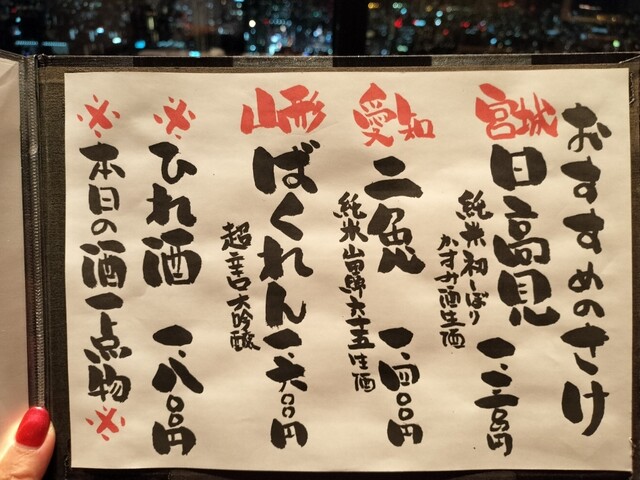 おすすめのさけ
宮城
日高見 一、三〇〇円
純米 初しぼり
かすみ酒生酒
愛知
二兎 一、四〇〇円
純米 山田錦六十五生酒
山形
ばくれん 一、六〇〇円
超辛口大吟醸
※ひれ酒 一、八〇〇円
※本日の酒一点物※